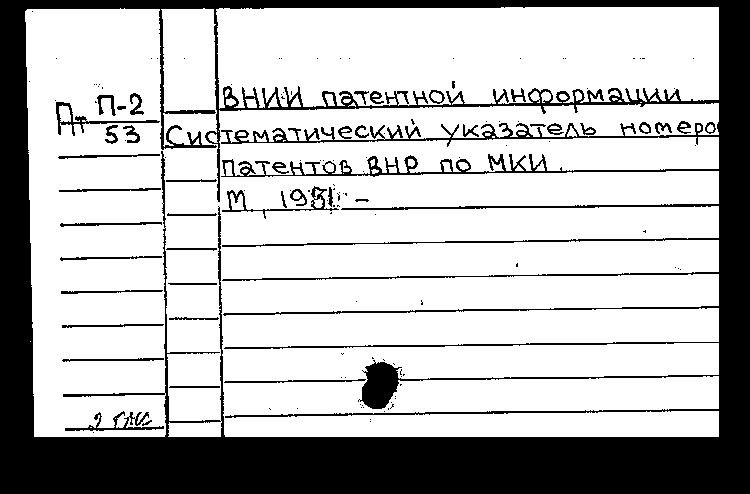 Пт П-2
53
ВНИИ патентной информации
Систематический указатель номеро
патентов ВНР по МКИ.
М., 1981 -